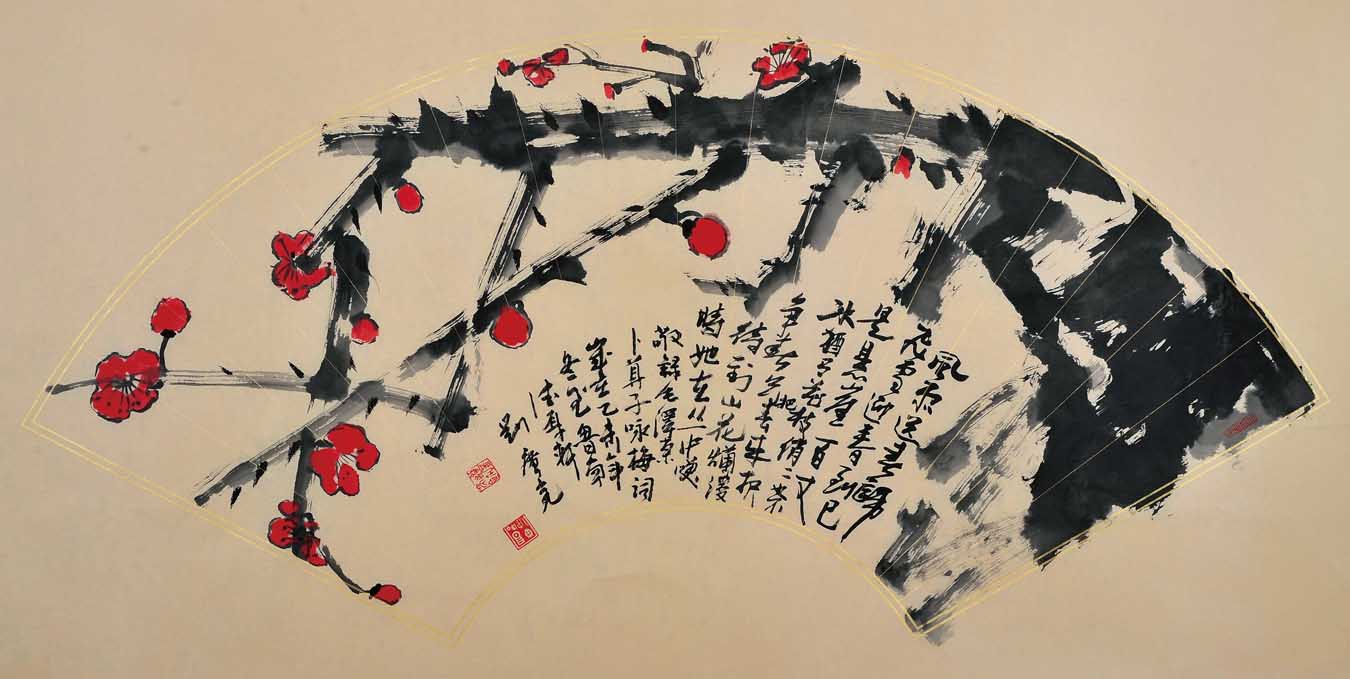 風雨送春歸
飛雪迎春到已
是懸崖百丈
冰猶有花枝俏
爭春只把春來報
待到山花爛漫
時她在丛中笑
敬錄毛澤東
卜算子咏梅詞
歲在乙未年
劉